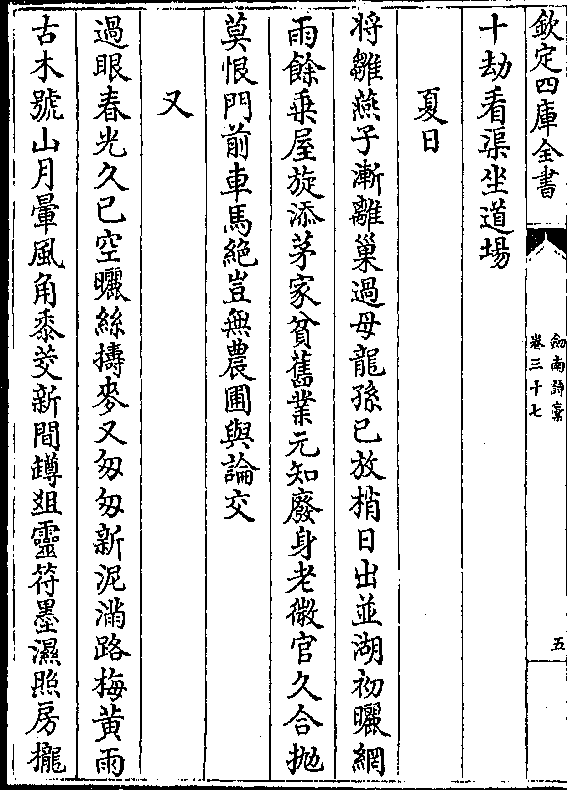 欽定四庫全書
劍南詩稾
卷三十七
五
十劫看渠坐道場
夏日
将雛燕子漸離巢過母龍孫已放梢日出並湖初曬網
雨餘乗屋旋添茅家貧舊業元知廢身老微官久合抛
莫恨門前車馬絶豈無農圃與論交
又
過眼春光久已空曬絲擣麥又匆匆新泥滿路梅黄雨
古木號山月暈風角黍茭新間罇俎靈符墨濕照房攏